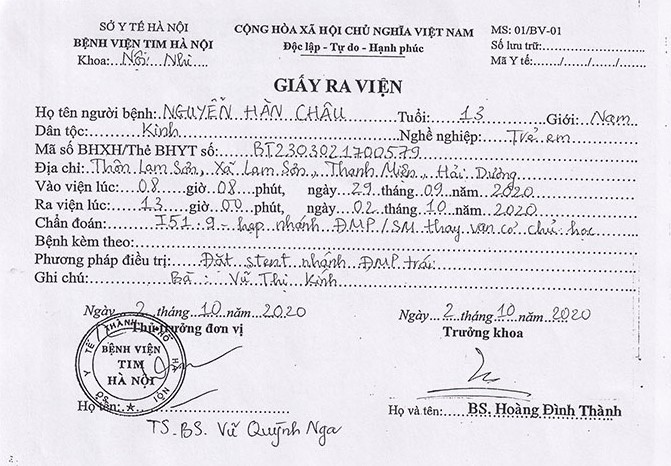 SỞ Y TẾ HÀ NỘI
BỆNH VIỆN TIM HÀ NỘI
Khoa: Nội Nhi
CỘNG HÒA XÃ HỘI CHỦ NGHĨA VIỆT NAM
Độc lập - Tự do - Hạnh phúc
MS: 01/BV-01
Số lưu trữ:
Mã Y tế:....../....../....../......
GIẤY RA VIỆN
Họ tên người bệnh: NGUYỄN HÀN CHÂU Tuổi: 13 Giới: Nam
Dân tộc: Kinh Nghề nghiệp: Trẻ em
Mã số BHXH/Thẻ BHYT số: BT2303021700579
Địa chỉ: Thôn Lam Sơn, Xã Lam Sơn, Thanh Miện, Hải Dương
Vào viện lúc: 08 giờ 08 phút, ngày 29 tháng 09 năm 2020
Ra viện lúc: 13 giờ 00 phút, ngày 02 tháng 10 năm 2020
Chẩn đoán: I51.9 - hẹp nhánh ĐMP/SM thay van cơ chủ học
Bệnh kèm theo:
Phương pháp điều trị: Đặt stent nhánh ĐMP trái
Ghi chú: Bà: Vũ Thị Kính
Ngày 2 tháng 10 năm 2020
Thủ trưởng đơn vị
Ngày 2 tháng 10 năm 2020
Trưởng khoa
SỞ Y TẾ THÀNH PHỐ HÀ NỘI
BỆNH VIỆN
TIM
HÀ NỘI
Họ tên:
TS.BS. Vũ Quỳnh Nga
Họ và tên: BS. Hoàng Đình Thành